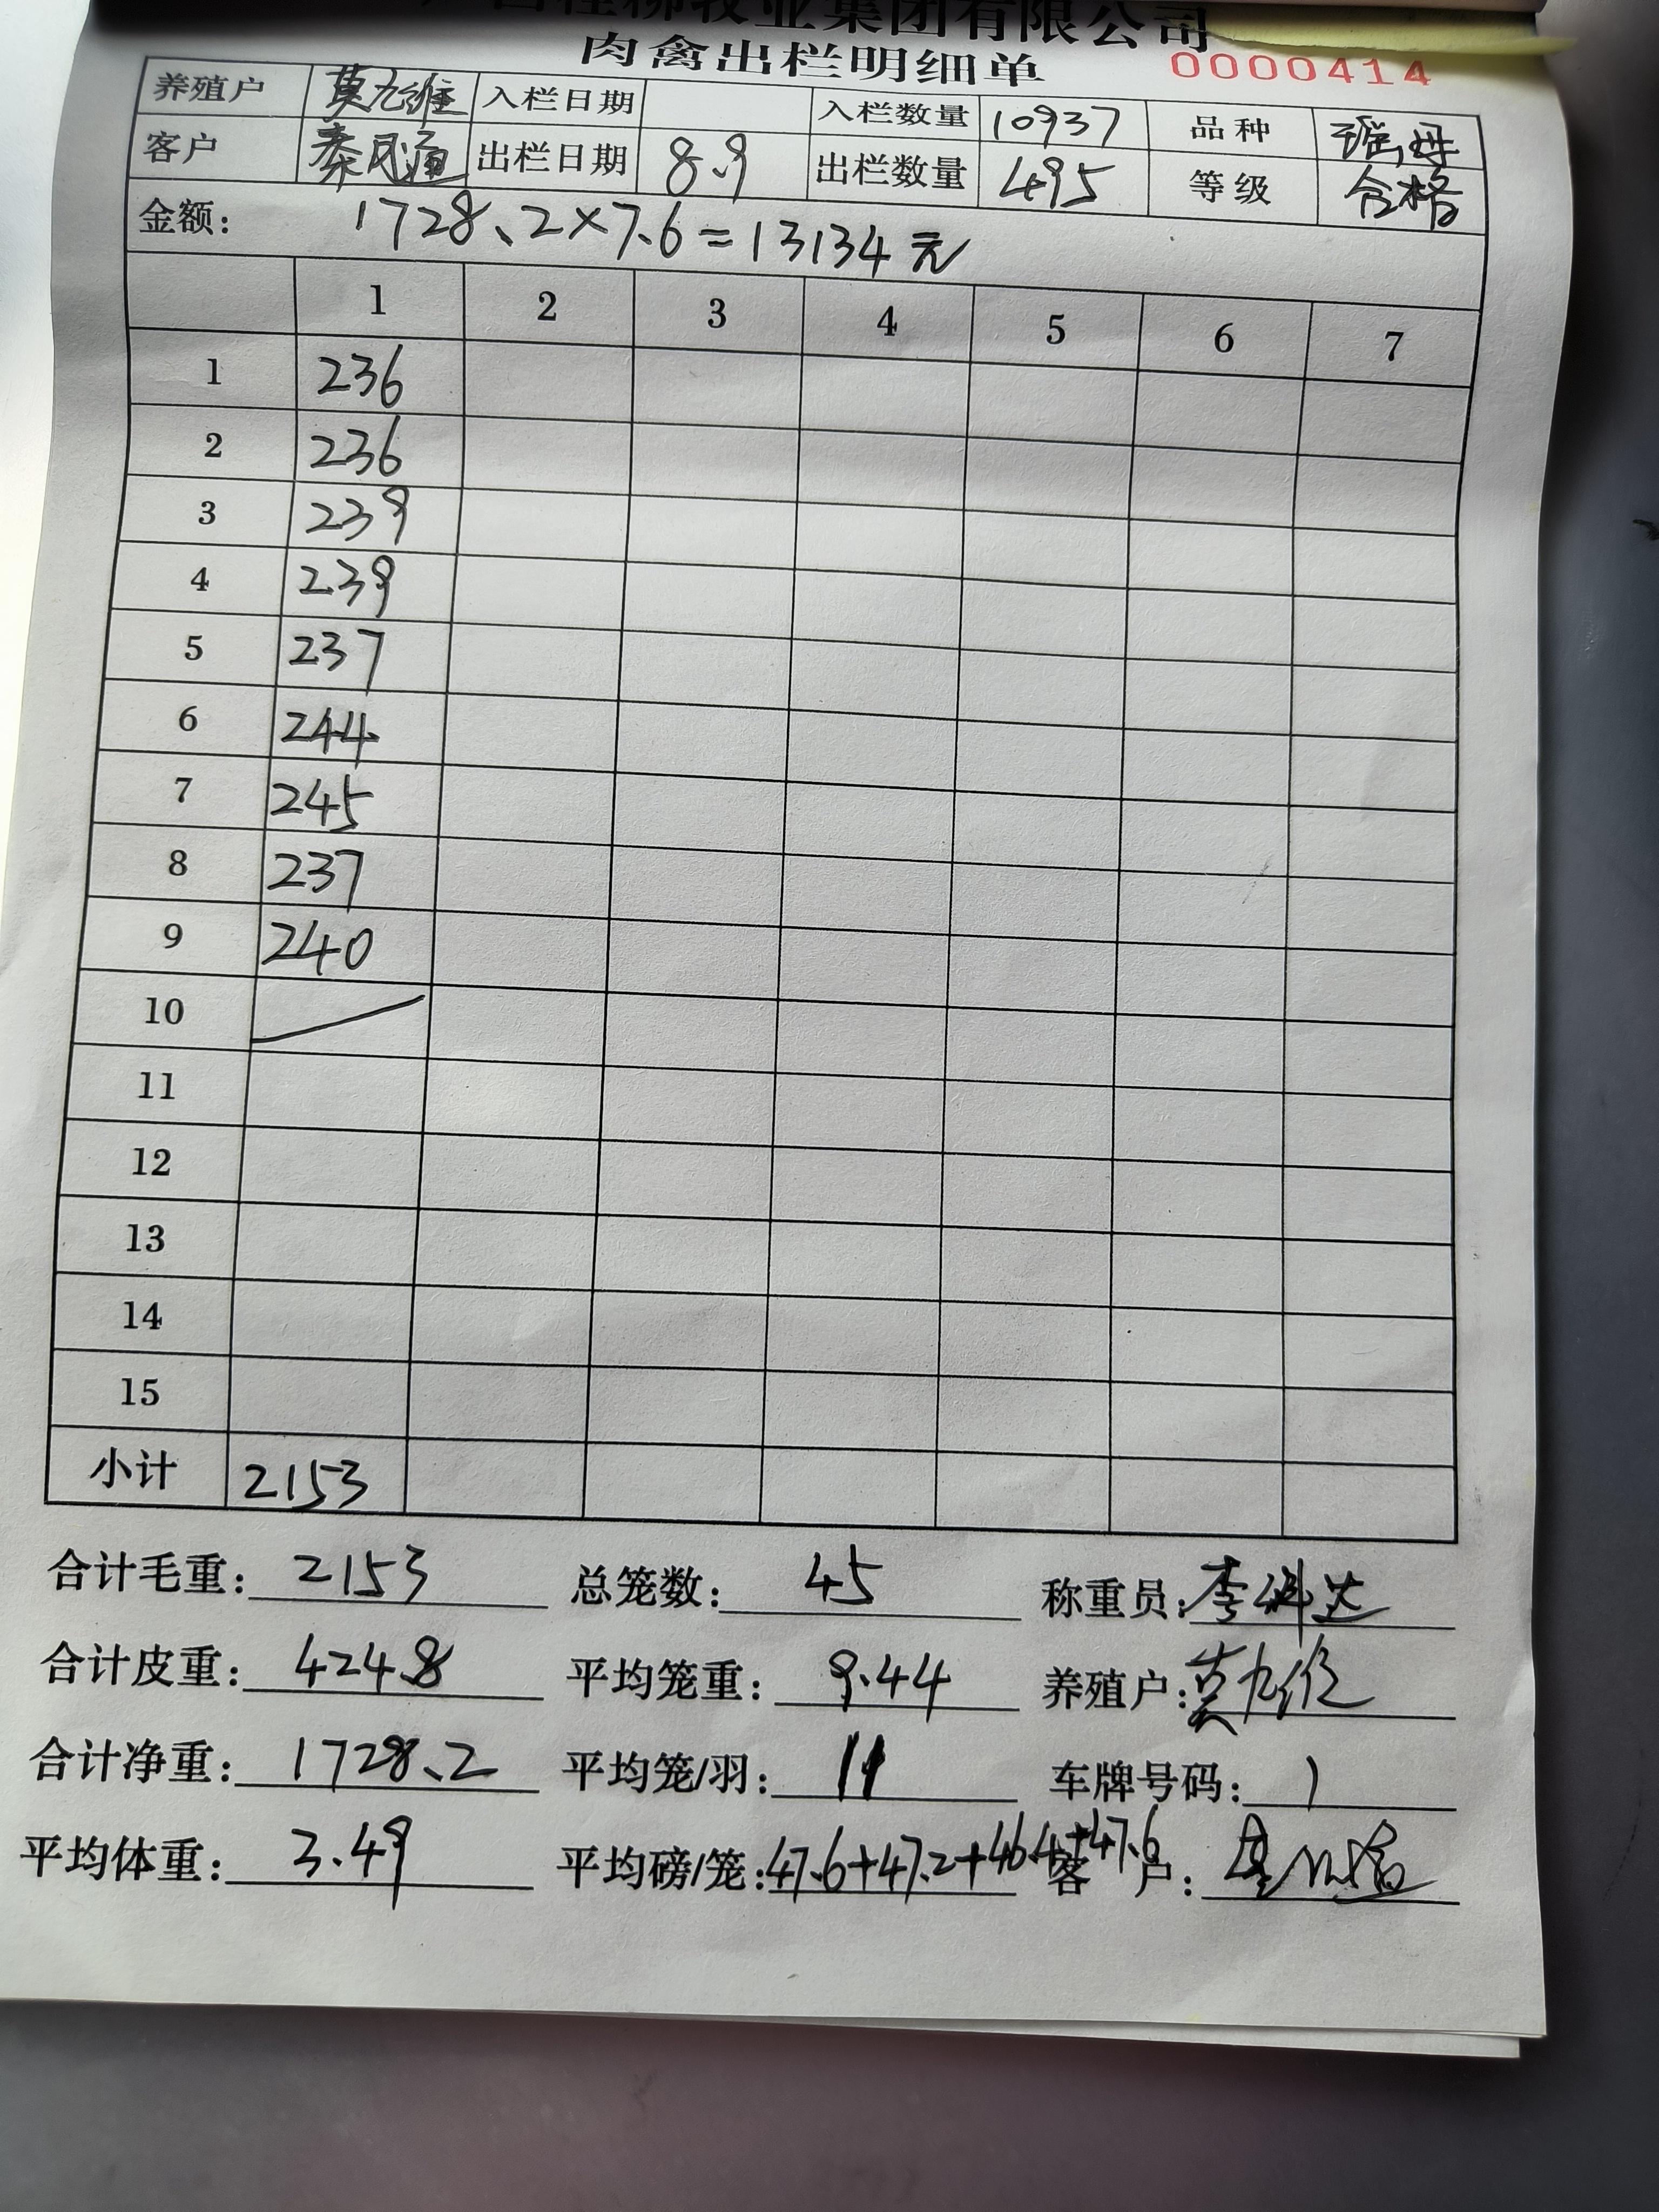 桂柳牧业集团有限公司
肉禽出栏明细单 0000414
养殖户 莫九维 入栏日期 入栏数量 10937 品种 瑶母
客户 秦风通 出栏日期 8.9 出栏数量 495 等级 合格
金额: 1728、2×7.6=13134元
1 2 3 4 5 6 7
1 236
2 236
3 239
4 239
5 237
6 244
7 245
8 237
9 240
10
11
12
13
14
15
小计 2153
合计毛重: 2153 总笼数: 45 称重员:
合计皮重: 424.8 平均笼重: 9.44 养殖户: 莫九维
合计净重: 1728、2 平均笼/羽: 11 车牌号码:
平均体重: 3.49 平均磅/笼: 47.6+47.2+46.4+47.6 客户: